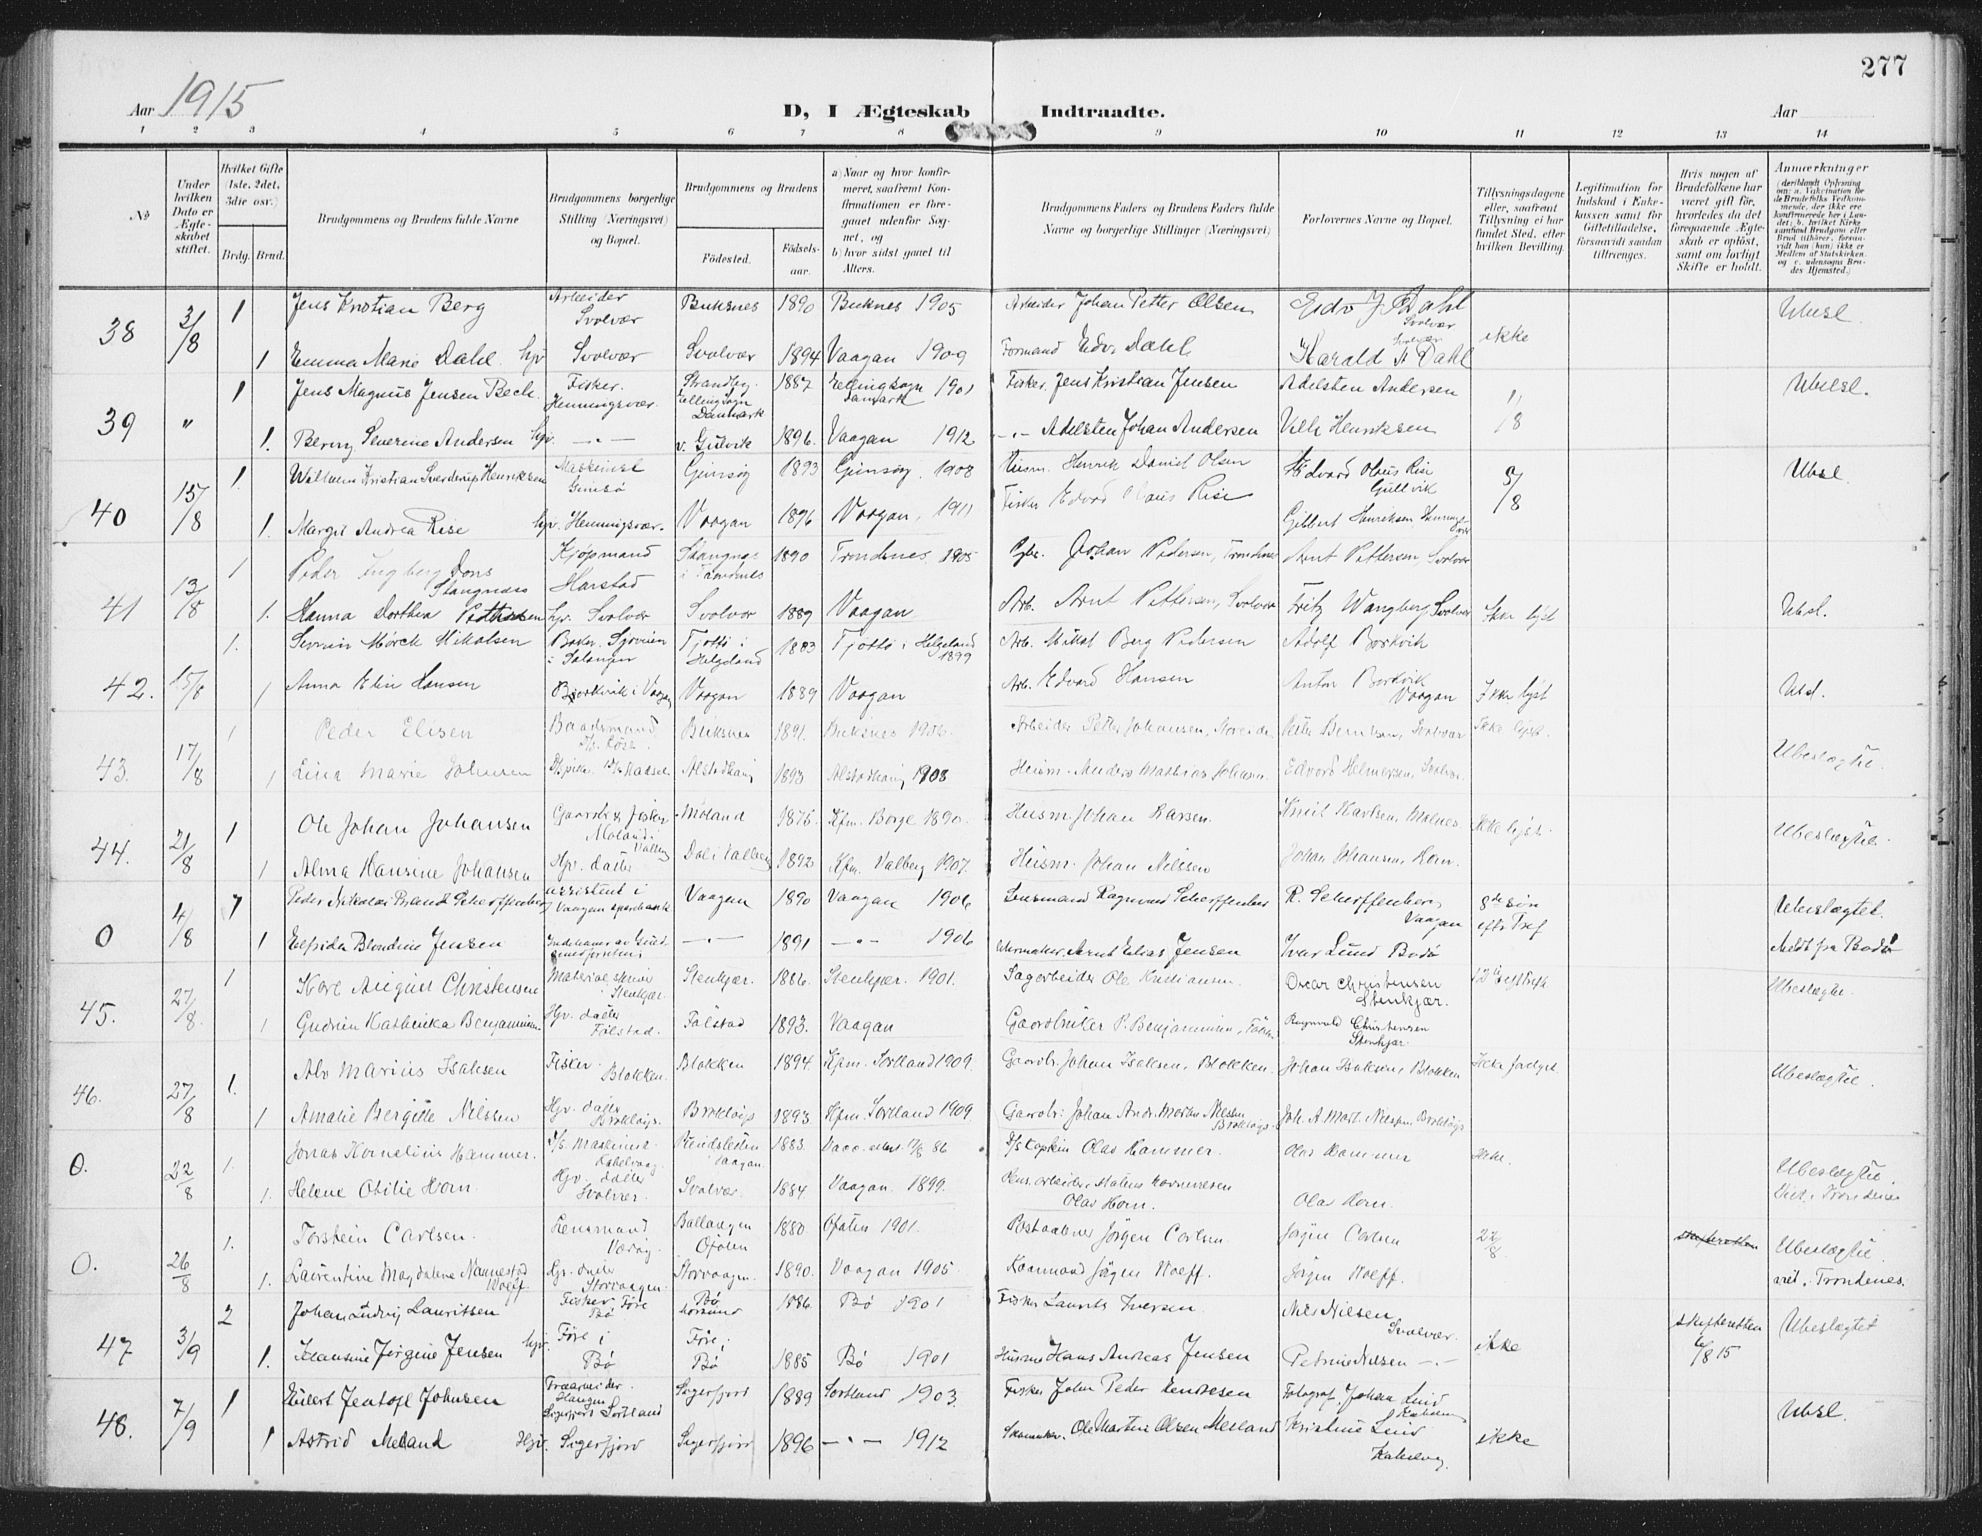 277
Aar 1915
D, I Ægteskab Indtraadte.
Aar
1 2 3 4 5 6 7 8 9 10 11 12 13 14
No
Under hvilken Dato er Ægteskabet stiftet.
Hvilket Gifte (1ste, 2det, 3die osv.)
Brdg. Brud.
Brudgommens og Brudens fulde Navne
Brudgommens borgerlige Stilling (Næringsvei) og Bopæl.
Brudgommens og Brudens
Fødested.
Fødselsaar.
a) Naar og hvor konfirmeret, saafremt Konfirmationen er foregaaet udenfor Sognet, og
b) hvor sidst gaaet til Alters.
Brudgommens Faders og Brudens Faders fulde Navne og borgerlige Stillinger (Næringsvei)
Forlovernes Navne og Bopæl.
Tillysningsdagene eller, saafremt Tillysning ei har fundet Sted, efter hvilken Bevilling.
Legitimation for Indskud i Enkekassen samt for Giftetilladelse, forsaavidt saadan tiltrænges.
Hvis nogen af Brudefolkene har været gift før, hvorledes da det foregaaende Ægteskab er opløst, samt om lovligt Skifte er holdt.
Anmærkninger
38 3/8 1 Jens Kristian Berg Arbeider Svolvær Buksnes 1890 Buknes 1905 Arbeider Johan Petter Olsen Edv J Dahl Svolvær ikke Ubesl.
1 Emma Marie Dahl hjv Svolvær Svolvær 1894 Vaagan 1909 Formand Edv. Dahl Harald A Dahl
39 " 1 Jens Magnus Jensen Bech Fisker. Henningsvær. Strandby Danmark 1887 1901 Danmark Fisker. Jens Kristian Jensen Adelsten Andersen 1/8 Ubesl.
1. Severine Andersen hjv. -"- 1896. Vaagan 1912 -"- Adelsten Johan Andersen Vilh Henriksen
40 15/8 1. Wilhelm Kristian Sverdrup Henriksen Gimsø Gimsøy 1893 Gimsøy. 1908 Husm. Henrik Daniel Olsen Edvard Olaus Rise Gullvik 8 Ubsl
1. Margit Andrea Rise hjv. Henningsvær. Vaagan 1896 Vaagan. 1911 Fisker Edvard Olaus Rise Gilbert Henriksen
41 13/8 1 Peder Ingberg Dons Stangnæs Kjøpmand Harstad i Trondenes 1890 Trondenes. 1905 Johan Pedersen, Trondenes Arnt Pettersen, Svolvær
1. Hanna Dorthea Pettersen hjv. Svolvær Svolvær 1889 Vaagan Arb. Arnt Pettersen, Svolvær Fritz Wangberg, Svolvær Ikke lyst Ubsl.
42. 15/8 1. Severin Mørck Mikalsen i Salangen Tjøtto i Helgeland 1883 Tjøttø i Helgeland 1899 Arb. Mikal Berg Pedersen Adolf Borkvik
1 Anna Elin Hansen Vaagan 1889 Vaagan Arb. Edvard Hansen Anton Borkvik Vaagan Ikke lyst Ubsl.
43. 17/8 1 Peder Elisen Baadsmand Buksnes 1891. Buksnes 1906. Arbeider Peter Johansen, Svolvær Ikke lyst. Ubeslægtet.
1 Lina Marie Johnsen Alstadhaug 1893 Alstadhaug 1908 Husm. Anders Mathias Johnsen. Edvard Helmersen, Svolvær.
44. 21/8 1 Ole Johan Johansen Gaardbr & Fisker Moland i Valberg Moland 1876. Kfm. Borge 1890. Husm. Johan Larsen. Knut Karlsen, Molnes Ikke lyst. Ubeslægtet.
1 Alma Hansine Johansen Hjv. datter Dal i Valberg 1892 Kfm. Valberg 1907. Husm. Johan Nilssen Johan Johansen
0 4/8 1 Peder Nikolai Brandt Scherffenberg assistent i Vaagan sparebank Vaagan 1890 Vaagan 1906 Lensmand Ragnvald Scherffenberg R. Scherffenberg Vaagan 8de søn eft. Tref Ubeslægtet.
1 Elfrida Blondine Jensen Indehaver av -"- 1891 -"- 1906 Urmaker. Arnt Elias Jensen Ivar Lund Bodø Meldt fra Bodø
45. 27/8 1 Kåre August Christensen Stenkjær Stenkjær. 1886. Stenkjær. 1901. Sagarbeider Ole Kristiansen Oscar Christensen Stenkjær. Ubeslægtet.
1 Gudrun Kathinka Benjaminsen Hjv. datter Følstad. Følstad 1893. Vaagan Gaardbruker P. Benjaminsen, Ragnvald Christensen Stenkjær.
46. 27/8 1. Alv Marius Isaksen Fisker Blokken. Blokken 1894. Kfm. Sortland 1909. Gaardbr. Johan Isaksen, Blokken. Johan Isaksen, Blokken Ubeslægtet.
1 Amalie Bergitte Nilssen Hjv. datter Brokløys. Brokløys 1893. Kfm. Sortland 1909. Gaardbr. Johan Andr. Morten Nilssen Brokløys Joh. A. Mort. Nilssen, Brokløys
0. 22/8 1. Jonas Kornelius Hammer. Kabelvaag Vaagan. 1883. Olav Hammer. Olav Hammer Ikke.
1. Helene Otilie Horn Hjv. datter Svolvær. Svolvær. 1884. Vaagan. 1899. Olav Horn. Olav Horn. Ubeslægtet. Viet i Trondenes
0. 26/8 1. Torstein Carlsen. Lensmand Værøy. Ballangen Ofoten 1880 Ofoten 1901. Jørgen Carlsen Jørgen Carlsen 22/8. skifteretten Ubeslægtet.
1. Laurentine Magdalene Nannestad Woeff. Hjv. datter Storvaagen. Storvaagen. 1890. Vaagan 1905. Kaarmand Jørgen Woeff. Jørgen Woeff. viet i Trondenes.
47 3/9 2 Johan Ludvig Lauritssen Fisker Føre Bø Bø 1886. Bø 1901 Fisker Laurits Iversen Nils Nilsen Svolvær. skifteretten 6/8 15 Ubeslægtet
1. Hansine Jørgine Jensen hjv. Føre i Bø Føre i Bø 1885 Bø 1901 Husm Hans Andreas Jensen Petrine Nilsen -"- ikke
48. 7/9 1 Eilert Jentoft Johnsen Træarbeider. Sigerfjord Sortland Sigerfjord 1889 Sortland 1903. Fisker John Peder Fotograf. Johan Lind Ubsl.
1 Astrid Meland Hjv. Sigerfjord Sigerfjord 1896 -"- 1912 Skomaker. Ole Martin Olsen Meeland Kristine Lind Kabelvåg. ikke